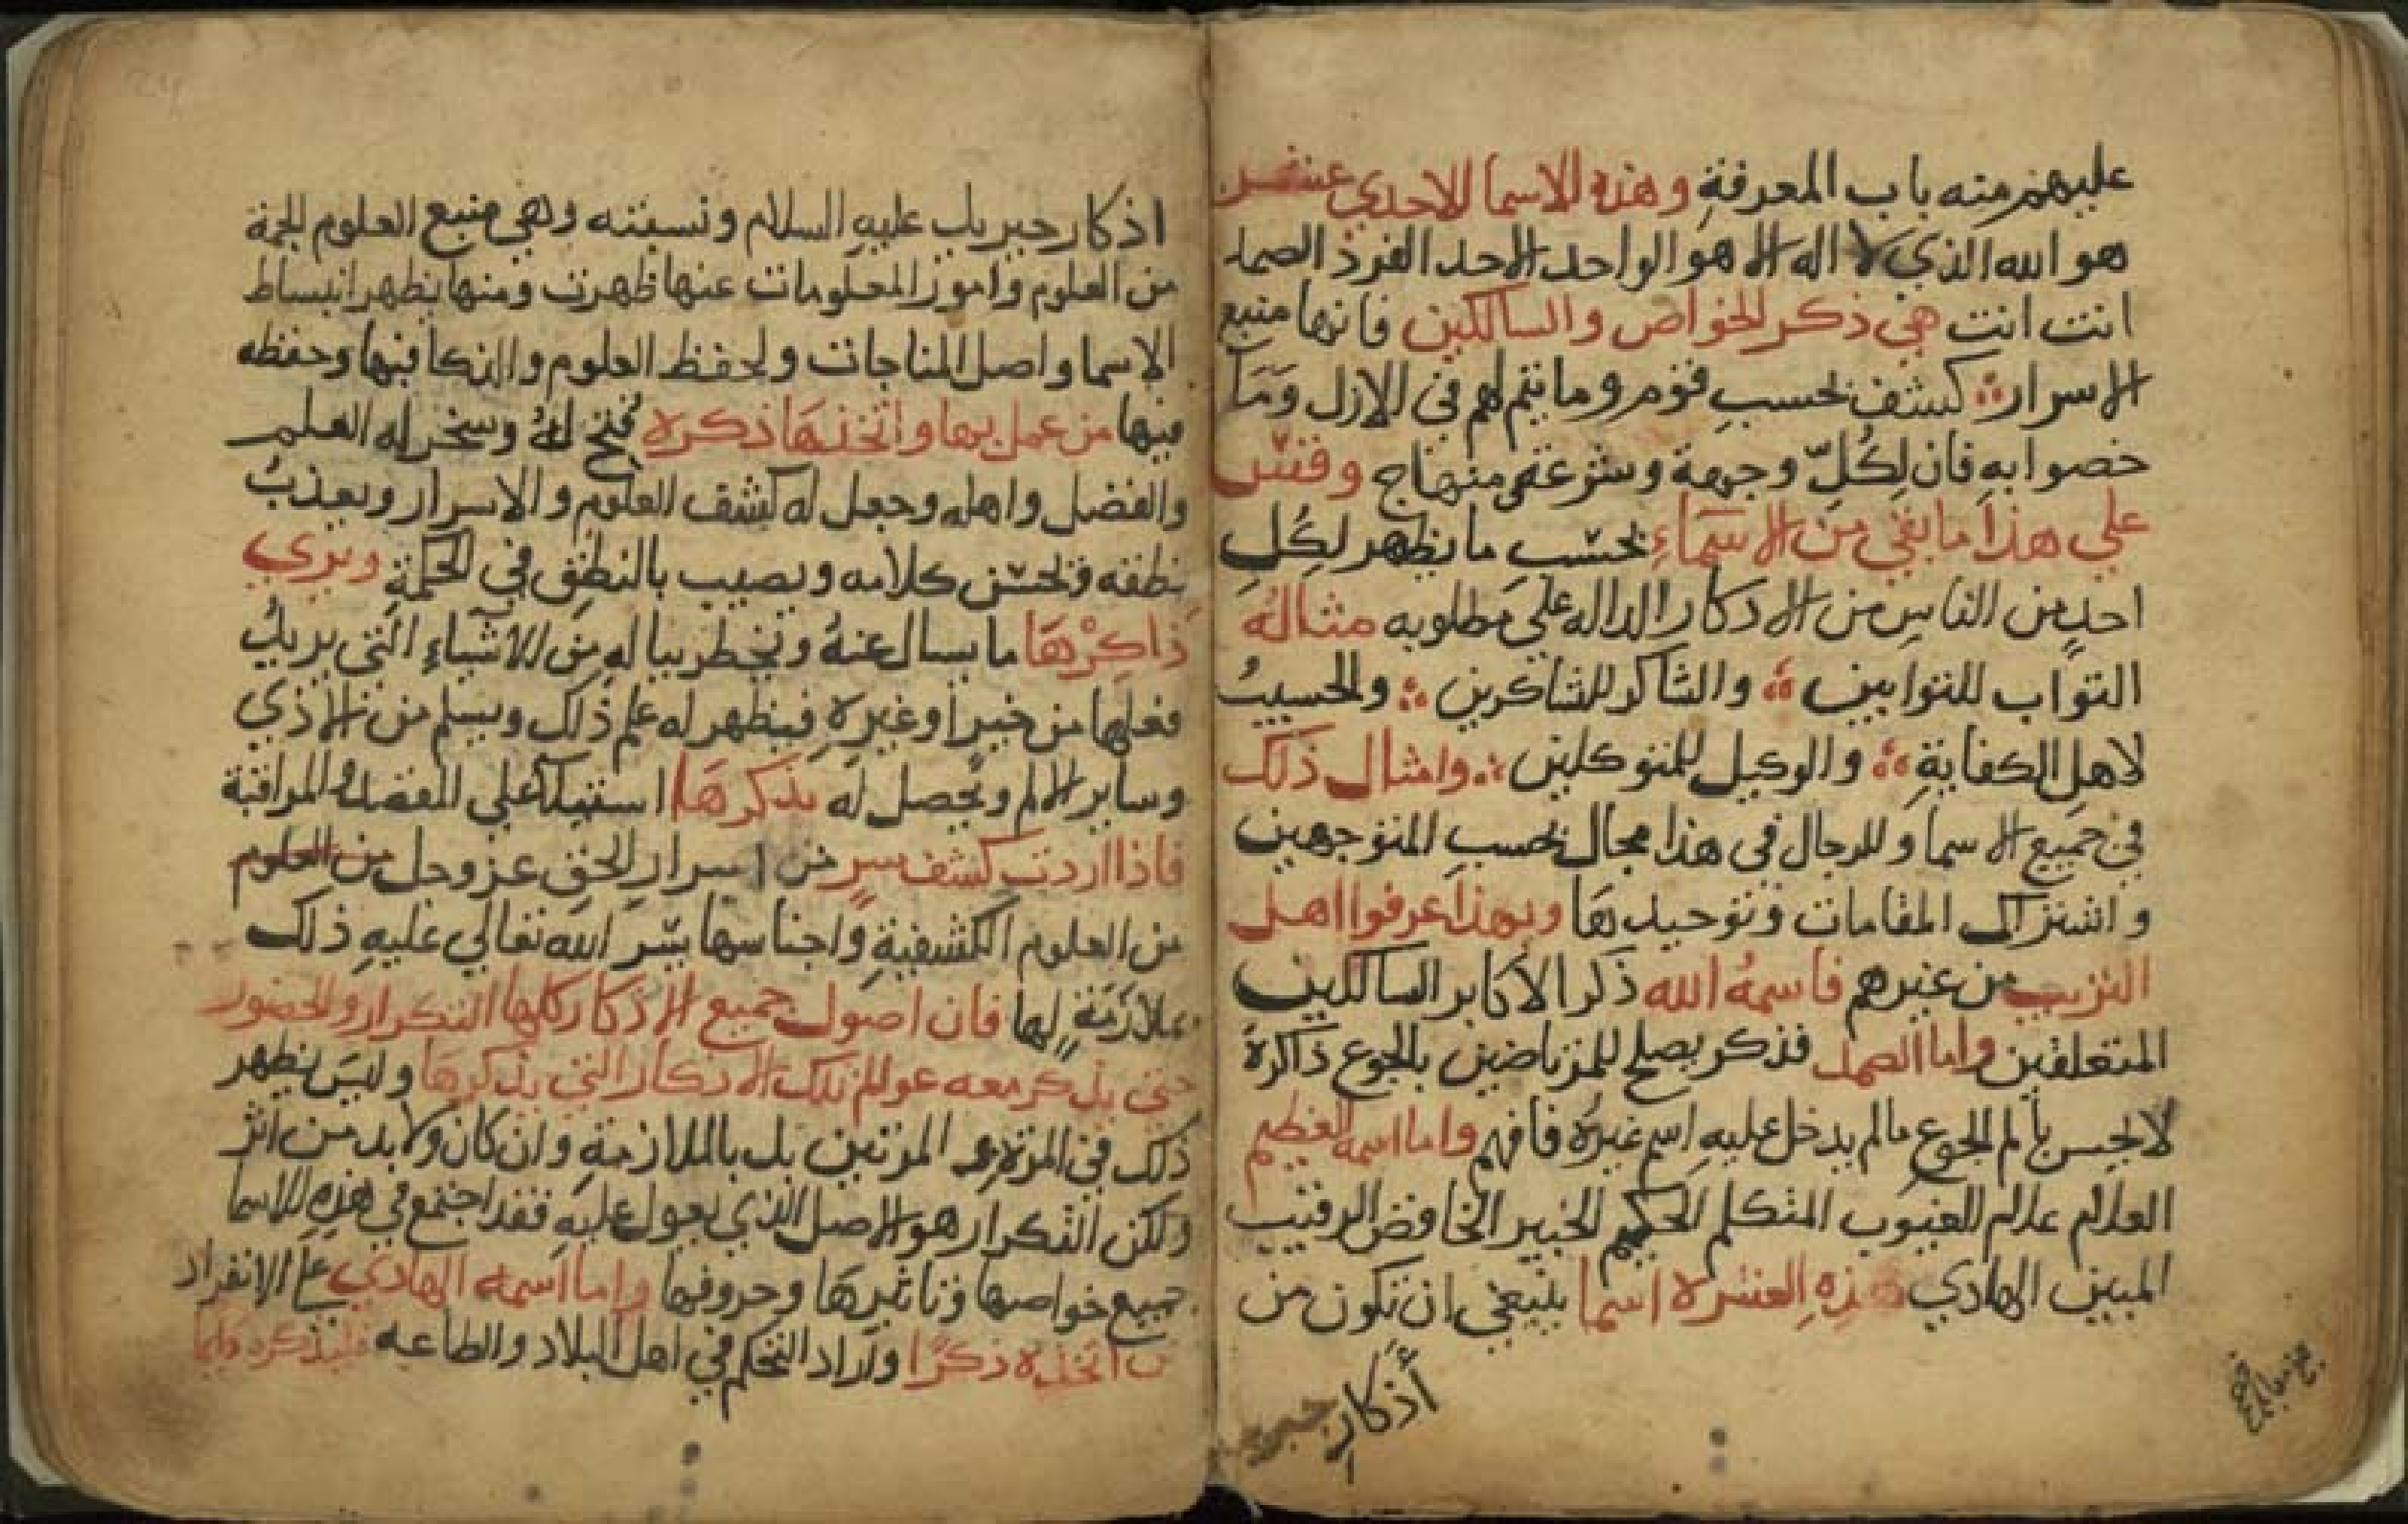 عليهم منه باب المعرفة وهذه الاسما الاحدي عشر
هو الله الذي لا اله الا هو الواحد الاحد الفرد الصمد
انت انت هي ذكر الخواص والسالكين فانها منبع
الاسرار كشف بحسب قوم وما يتم لهم في الازل وما
خصوا به فان لكل وجهة وشرعة منهاج وقس
علي هذا ما بقي من الاسماء بحسب ما يظهر لكل
احد من الناس من الاذكار الداله علي مطلوبه مثاله
التواب للتوابين والشاكر للشاكرين والحسيب
لاهل الكفاية والوكيل للمتوكلين وامثال ذلك
في جميع الاسما وللرجال في هذا مجال بحسب المتوجهين
واشتراك المقامات وتوحيدها وبهذا عرفوا اهل
الترتيب من غيرهم فاسمه الله ذكر الاكابر السالكين
المتعلقين واما الصمد فذكر يصلح للمرتاضين بالجوع ذاكرة
لا يحس بالم الجوع مالم يدخل عليه اسم غيره فافهم واما اسمه العظيم
العلام علام الغيوب المتكلم الحكيم الخبير الخافض الرقيب
المبين الهادي هذه العشرة اسما ينبغي ان تكون من
أذكار
اذكار جبريل عليه السلام ونسبته وهي منبع العلوم الجمة
من العلوم وامور المعلومات عنها ظهرت ومنها يظهر انبساط
الاسما واصل المناجات ولحفظ العلوم والذكا فيها وحفظه
فيها من عمل بها واتخذها ذكره فتح له وسخر له العلم
والفضل واهله وجعل له كشف العلوم والاسرار ويعذب
نطقه فيحسن كلامه ويصيب بالنطق في الحكمة ويري
ذاكرها ما يسال عنه ويخطر بباله من الاشياء التي يريد
فعلها من خير او غيره فيظهر له علم ذلك ويسلم من الاذي
وساير الالم ويحصل له بذكرها استيلا علي المراقبة
فاذا اردت كشف سر من اسرار الحق عز وجل من العلوم
من العلوم الكشفية واجناسها يسر الله تعالي عليه ذلك
بملازمة لها فان اصول جميع الاذكار كلها التكرار والحضور
حتي يذكر معه عوالم تلك الاذكار التي يذكرها وليس يظهر
ذلك في المرة او المرتين بل بالملازمة وان كان ولا بد من اثر
ولكن التكرار هو الاصل الذي يعول عليه فقد اجتمع في هذه الاسما
جميع خواصها وتاثيرها وحروفها واما اسمه الهادي علي الانفراد
اتخذه ذكرا واراد التحكم في اهل البلاد والطاعه فليذكره دايما